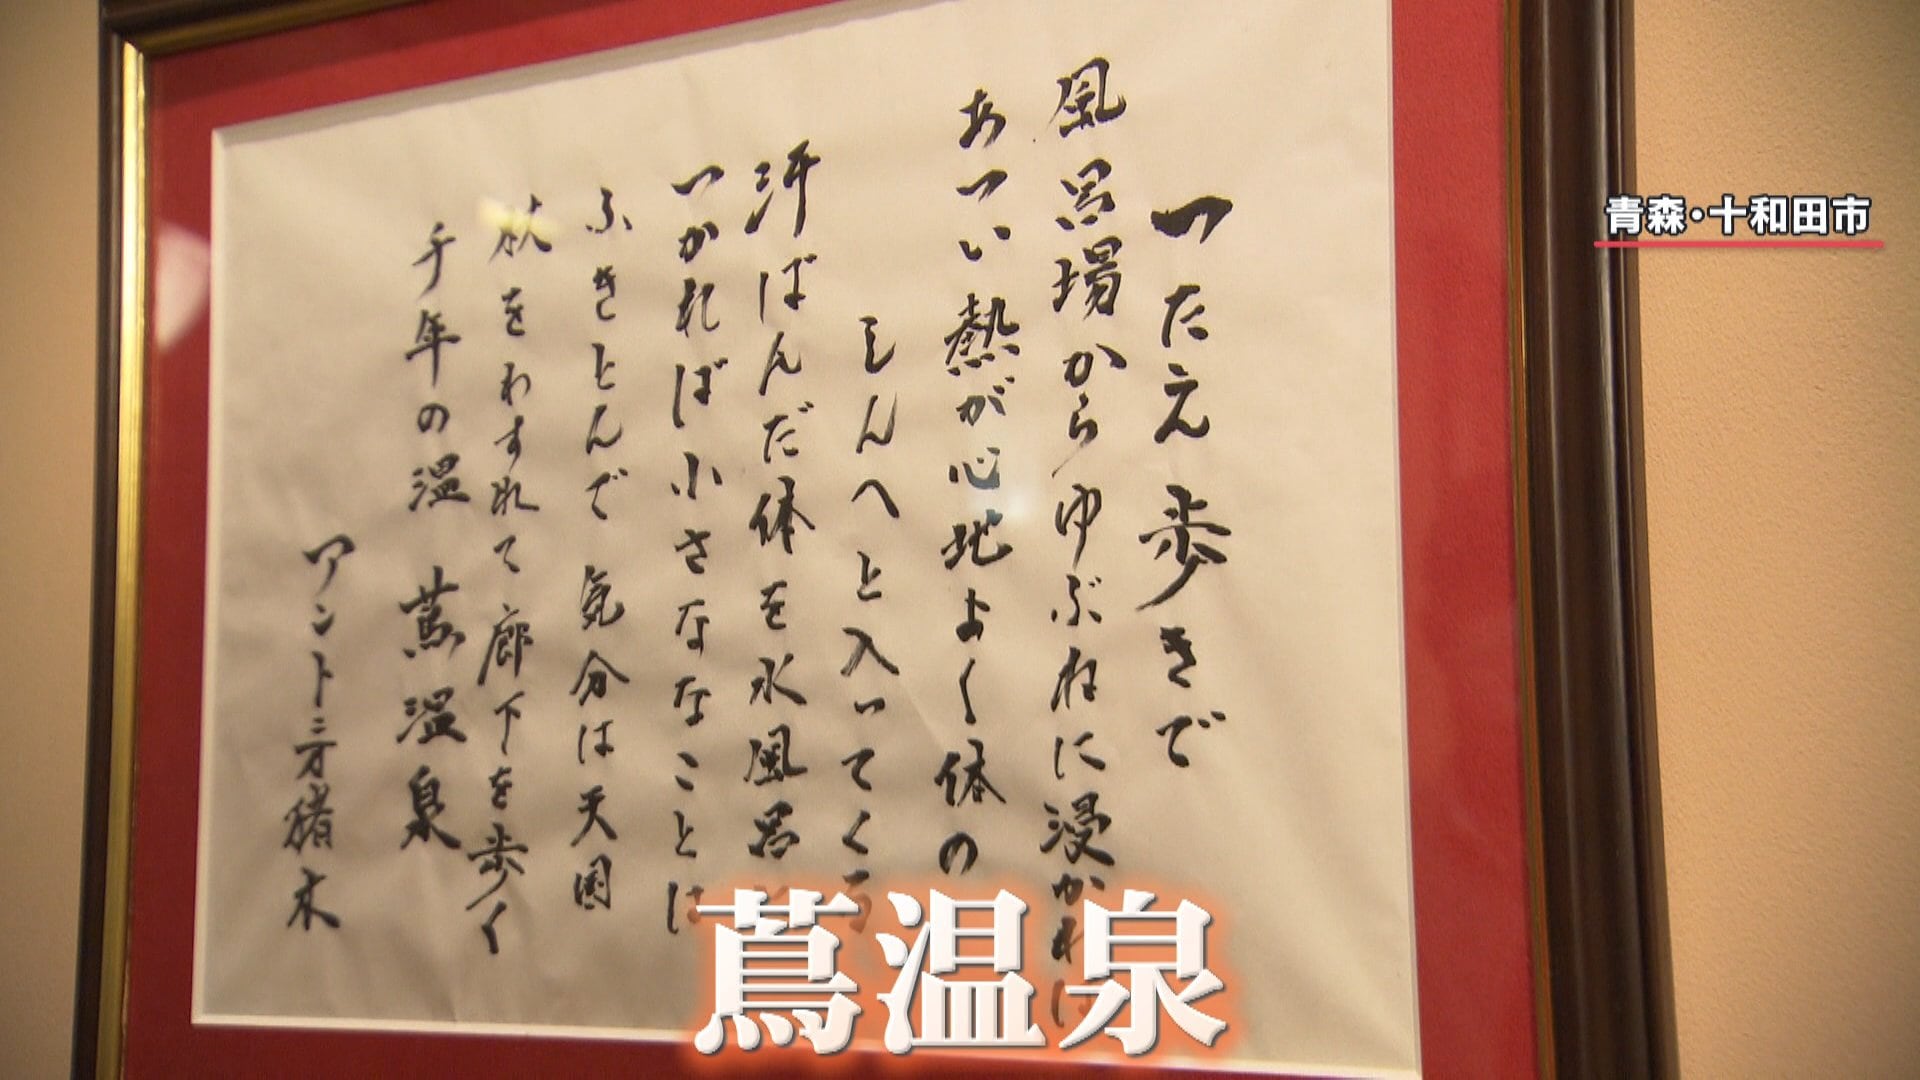 つたえ歩きで
風呂場からゆぶねに浸かれば
あつい熱が心地よく体の
しんへと入ってくる
汗ばんだ体を水風呂に
つかれば小さなことは
ふきとんで気分は天国
杖をわすれて廊下を歩く
千年の温 蔦温泉
アントニオ猪木
青森・十和田市
蔦温泉